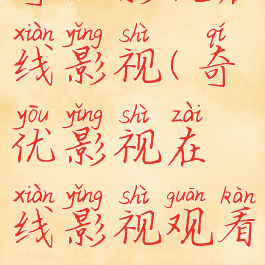 xiàn yǐng shì qí
线影视(奇
yōu yǐng shì zài
优影视在
xiàn yǐng shì guān kàn
线影视观看